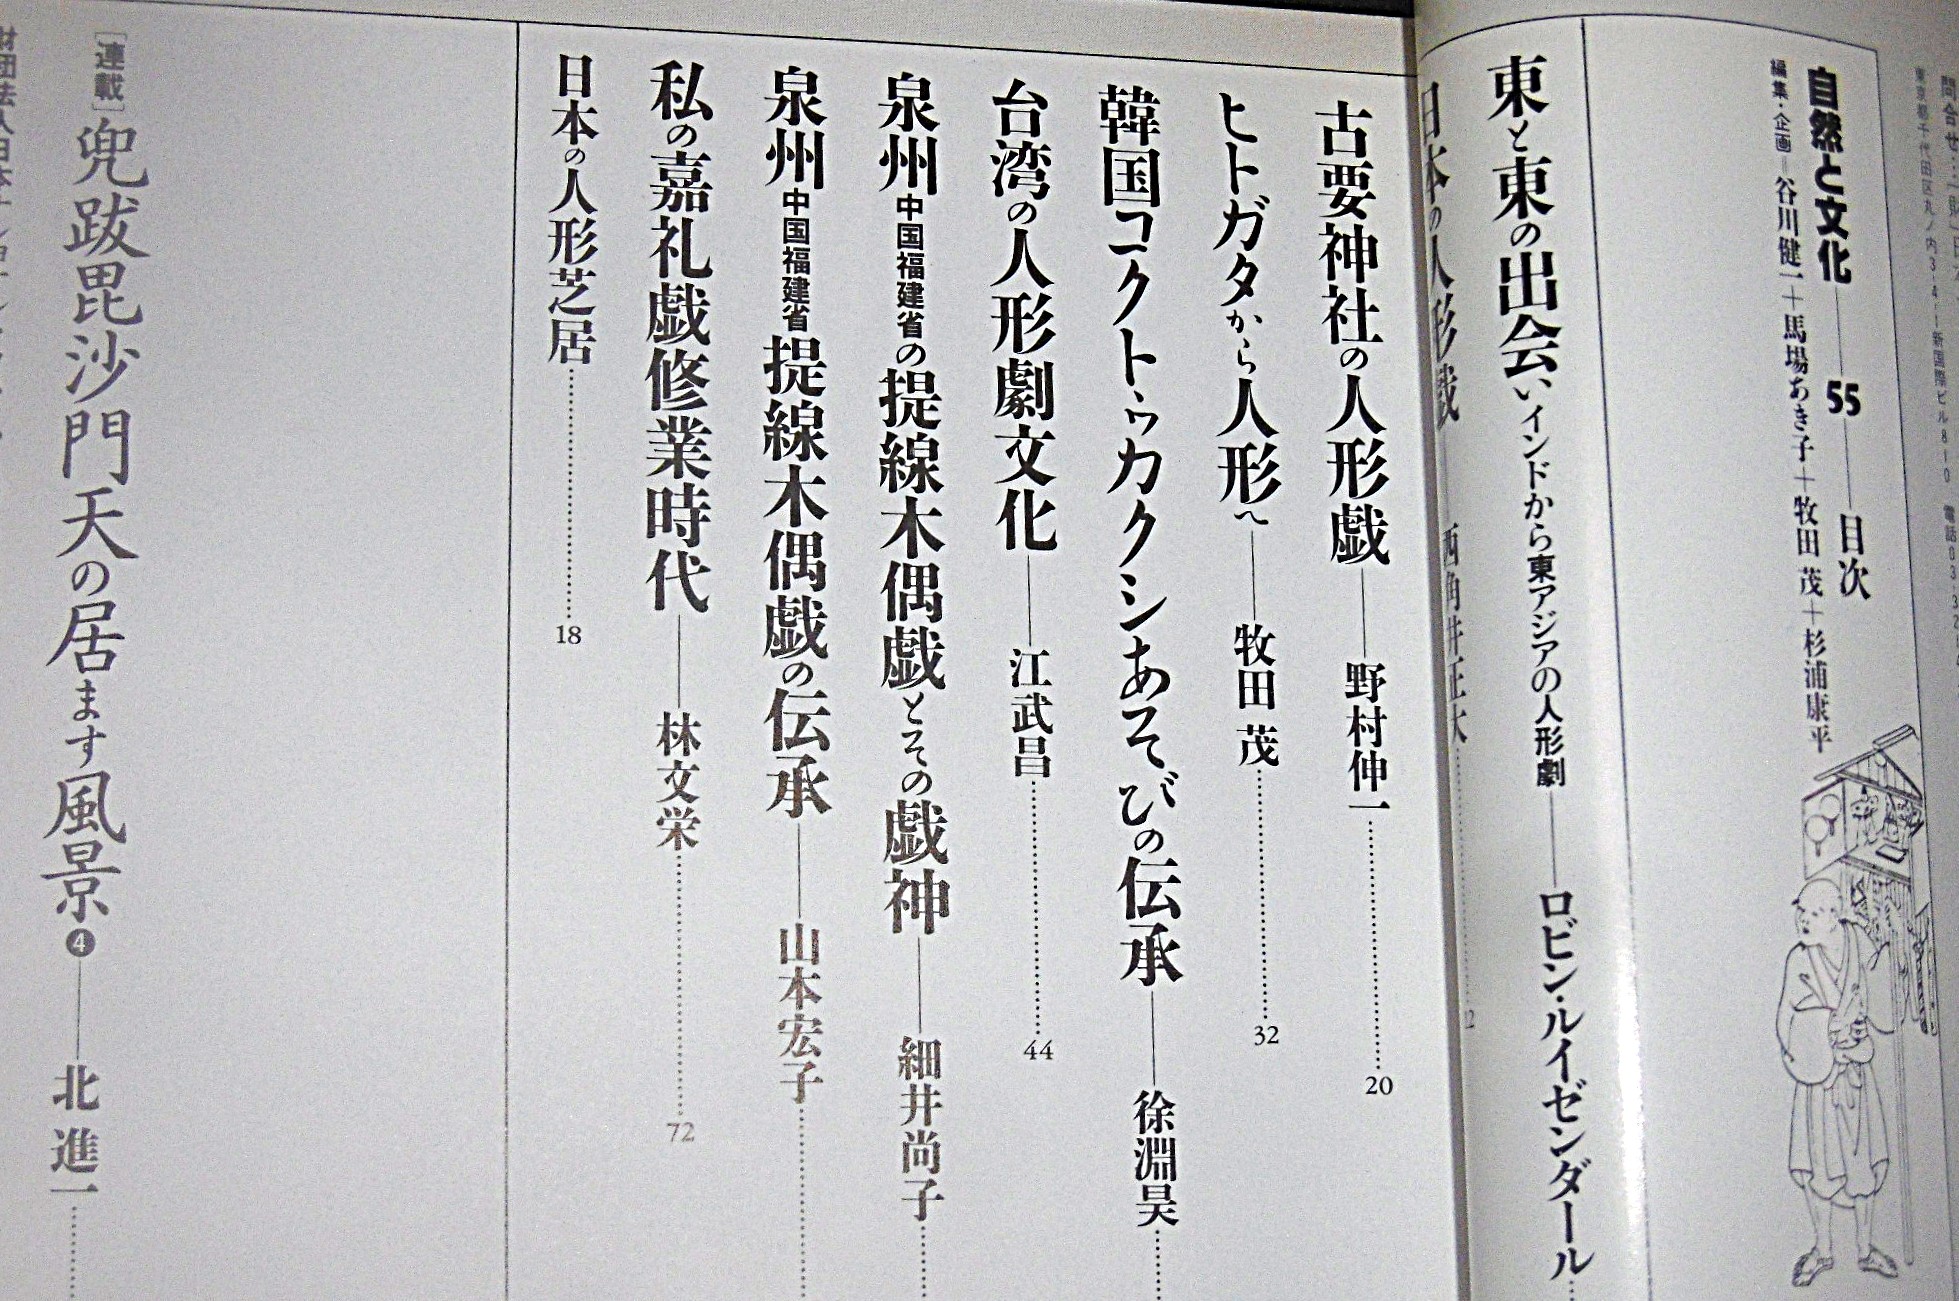 自然と文化――55――目次
編集・企画=谷川健一+馬場あき子+牧田 茂+杉浦康平
東と東の出会い インドから東アジアの人形劇――ロビン・ルイゼンダール
日本の人形戯――西角井正大
古要神社の人形戯――野村伸一 20
ヒトガタから人形へ――牧田 茂 32
韓国コクトゥカクシあそびの伝承――徐淵昊
台湾の人形劇文化――江武昌 44
泉州 中国福建省の提線木偶戯とその戯神――細井尚子
泉州 中国福建省 提線木偶戯の伝承――山本宏子
私の嘉礼戯修業時代――林文栄 72
日本の人形芝居 18
[連載] 兜跋毘沙門天の居ます風景❹――北 進一